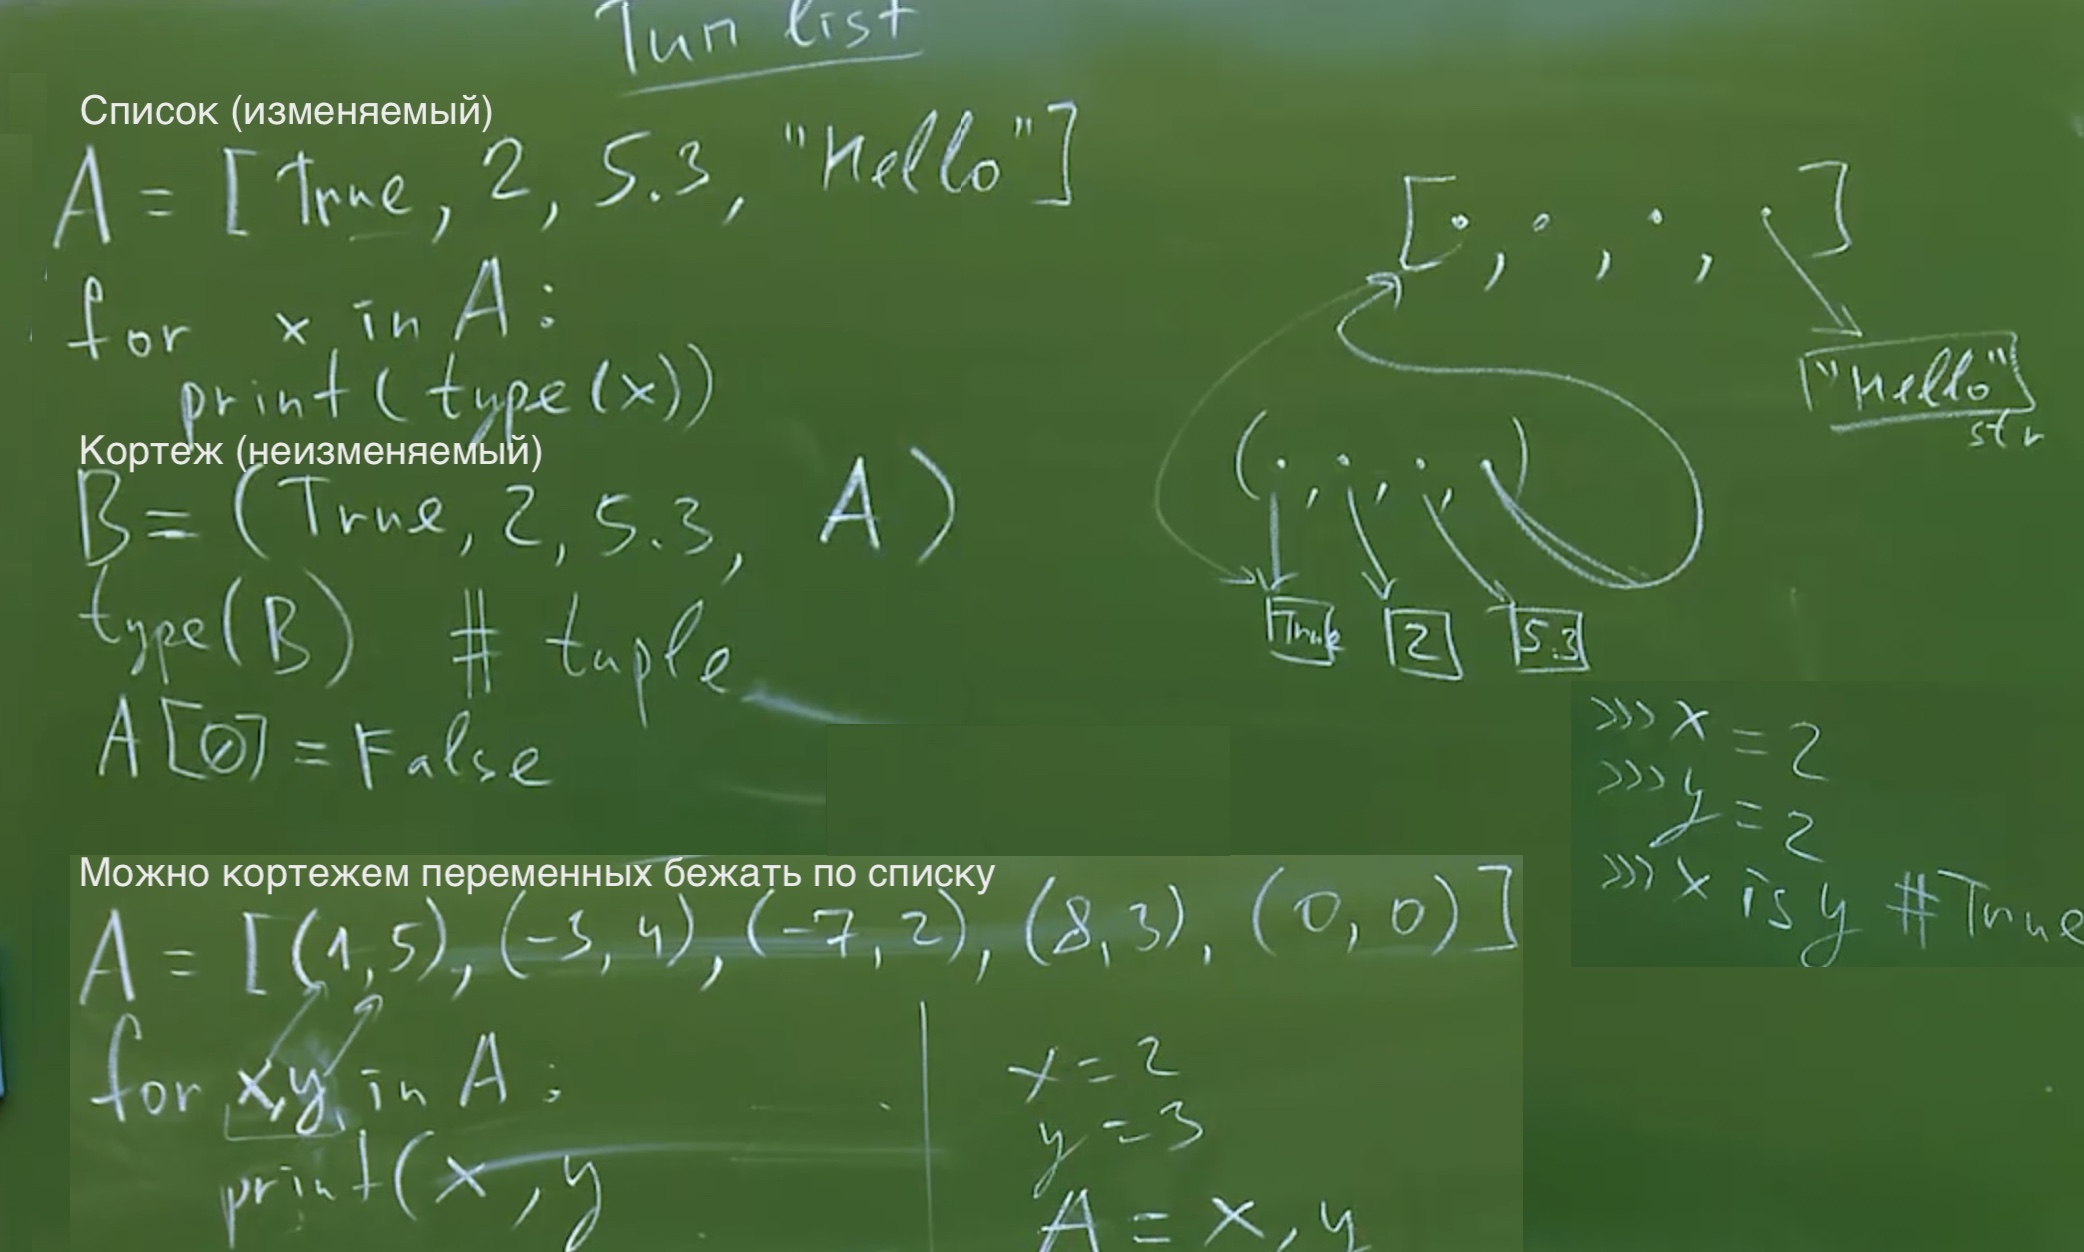 Тип list
Список (изменяемый)
A = [True, 2, 5.3, "Hello"]
for x in A:
print(type(x))
Кортеж (неизменяемый)
B = (True, 2, 5.3, A)
type(B) # tuple
A[0] = False
[., ., ., .]
"Hello"
str
(., ., ., .)
True 2 5.3
>>> x = 2
>>> y = 2
>>> x is y # True
Можно кортежем переменных бежать по списку
A = [(1, 5), (-3, 4), (-7, 2), (8, 3), (0, 0)]
for x, y in A:
print(x, y
x = 2
y = 3
A = x, y